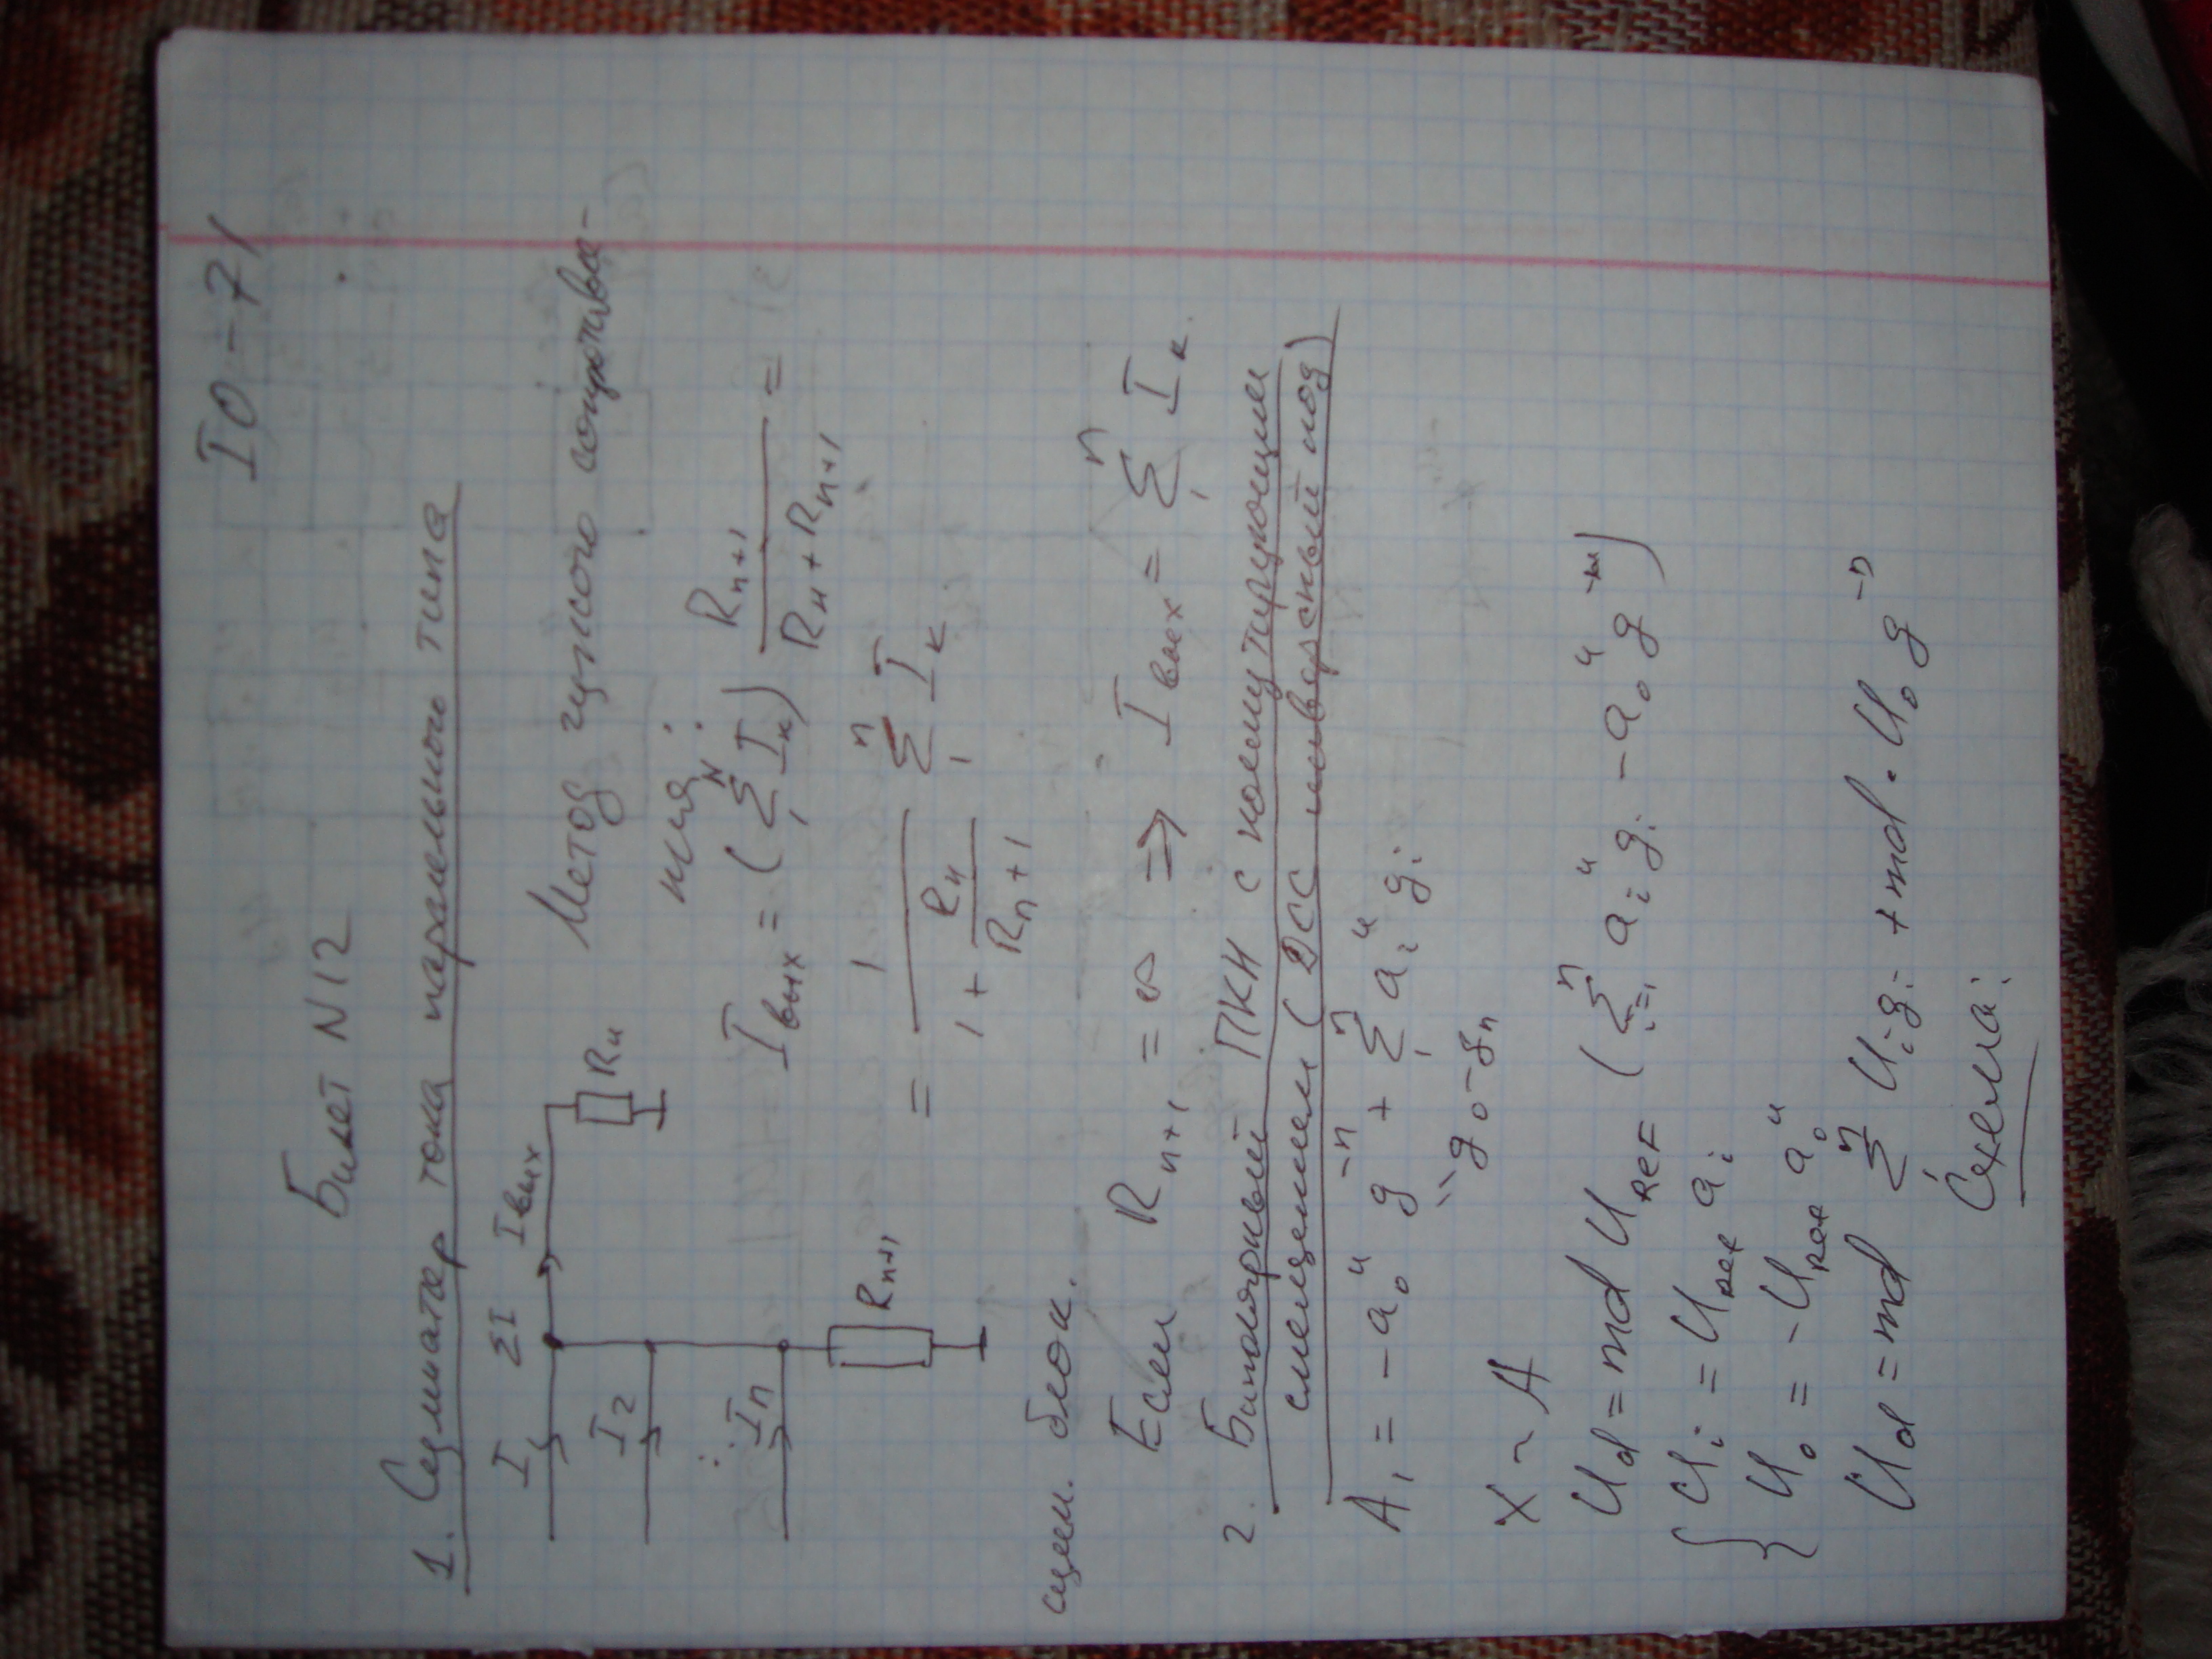 IO-71
Билет N12
1. Сумматор тока паралельного типа
I ΣI Iвых Rн
I2
⋮ In
Rn+1
Метод чужого сопротивле-
ния:
Iвых = (Σ₁ᴺ Iк) Rn+1 / (Rн + Rn+1) =
= 1 / (1 + Rн / Rn+1) Σ₁ⁿ Iк
блок.
Если Rn+1 = ∞ ⇒ Iвых = Σ₁ⁿ Iк
2. Биполярный ПКН с комутирующим
смещением (ДСС инверсный код)
A₁ = -a₀ᵘ g⁻ⁿ + Σ₁ⁿ aᵢᵘ gᵢ
"g₀-gₙ
X ~ A
Ud = md UREF (Σᵢ₌₁ⁿ aᵢᵘ gᵢ - a₀ᵘ g⁻ⁿ)
{ Uᵢ = URef aᵢᵘ
U₀ = -URef a₀ᵘ
Ud = md Σ₁ⁿ Uᵢgᵢ + md · U₀ g⁻ⁿ
Схема: